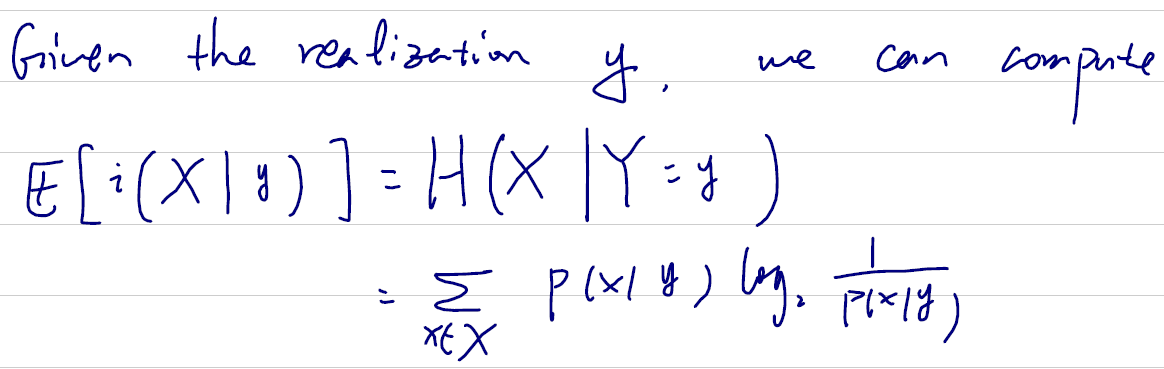 Given the realization y, we can compute
E[i(X|y)] = H(X|Y=y)
= ∑ P(x|y) log₂ 1/P(x|y)
x∈X